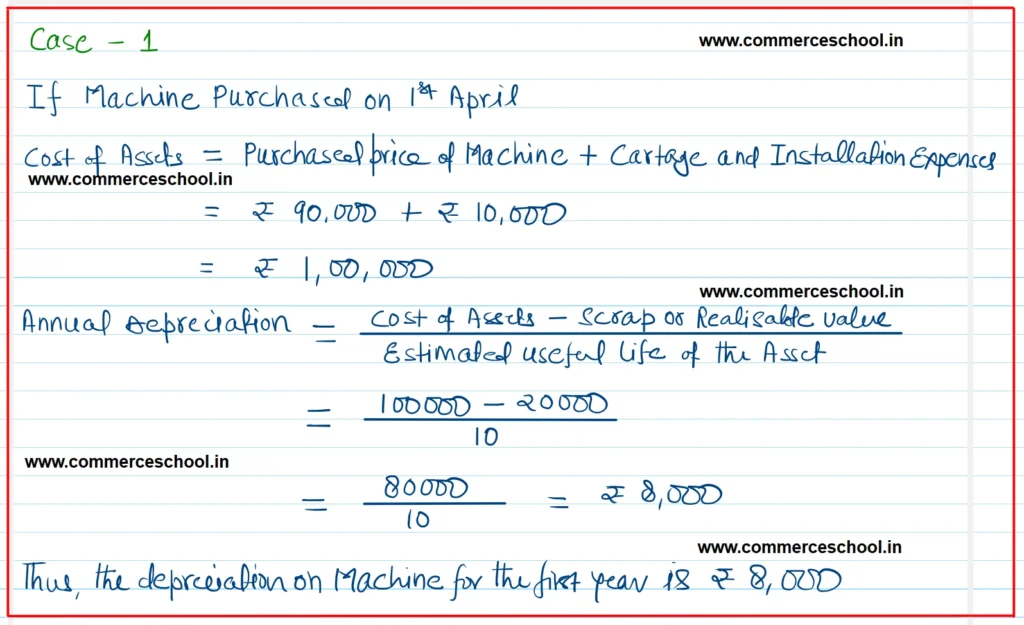 Case - 1
www.commerceschool.in
If Machine Purchased on 1st April
Cost of Assets = Purchased price of Machine + Cartage and Installation Expenses
www.commerceschool.in
= ₹ 90,000 + ₹ 10,000
= ₹ 1,00,000
www.commerceschool.in
Annual Depreciation = Cost of Assets - Scrap or Realisable value
Estimated useful life of the Asset
= 100000 - 20000
10
www.commerceschool.in
= 80000 = ₹ 8,000
10
www.commerceschool.in
Thus, the depreciation on Machine for the first year is ₹ 8,000